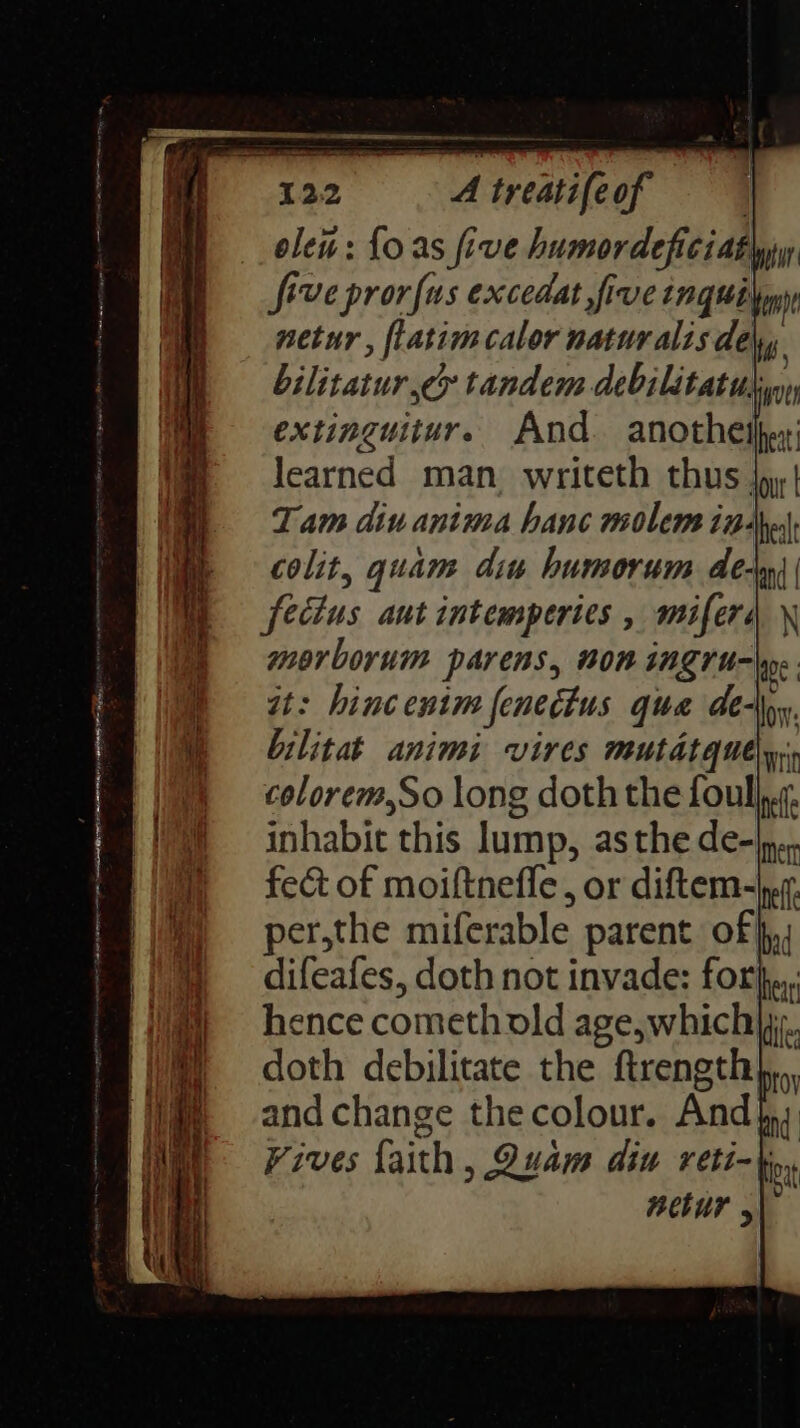 122 A treatiſe of
oleū: ſo as ſive humor deficiat
ſive prorſus excedat, ſive inqui
netur, ſtatim calor naturalis de
bilitatur, & tandem debilitatu
extinguitur. And another
learned man writeth thus
Tam diu anima hanc molem in-
colit, quàm diu humorum de-
fectus aut intemperies, miſera
morborum parens, non ingru-
it: hinc enim ſenectus quæ de-
bilitat animi vires mutátque
colorem, So long doth the ſoul
inhabit this lump, as the de-
fect of moiſtneſſe, or diſtem-
per, the miſerable parent of
diſeaſes, doth not invade: for
hence cometh old age, which
doth debilitate the ſtrength
and change the colour. And
Vives ſaith, Quàm diu reti-
netur,